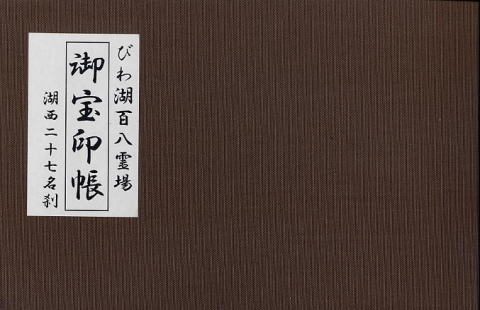 びわ湖百八霊場
御宝印帳
湖西二十七名刹